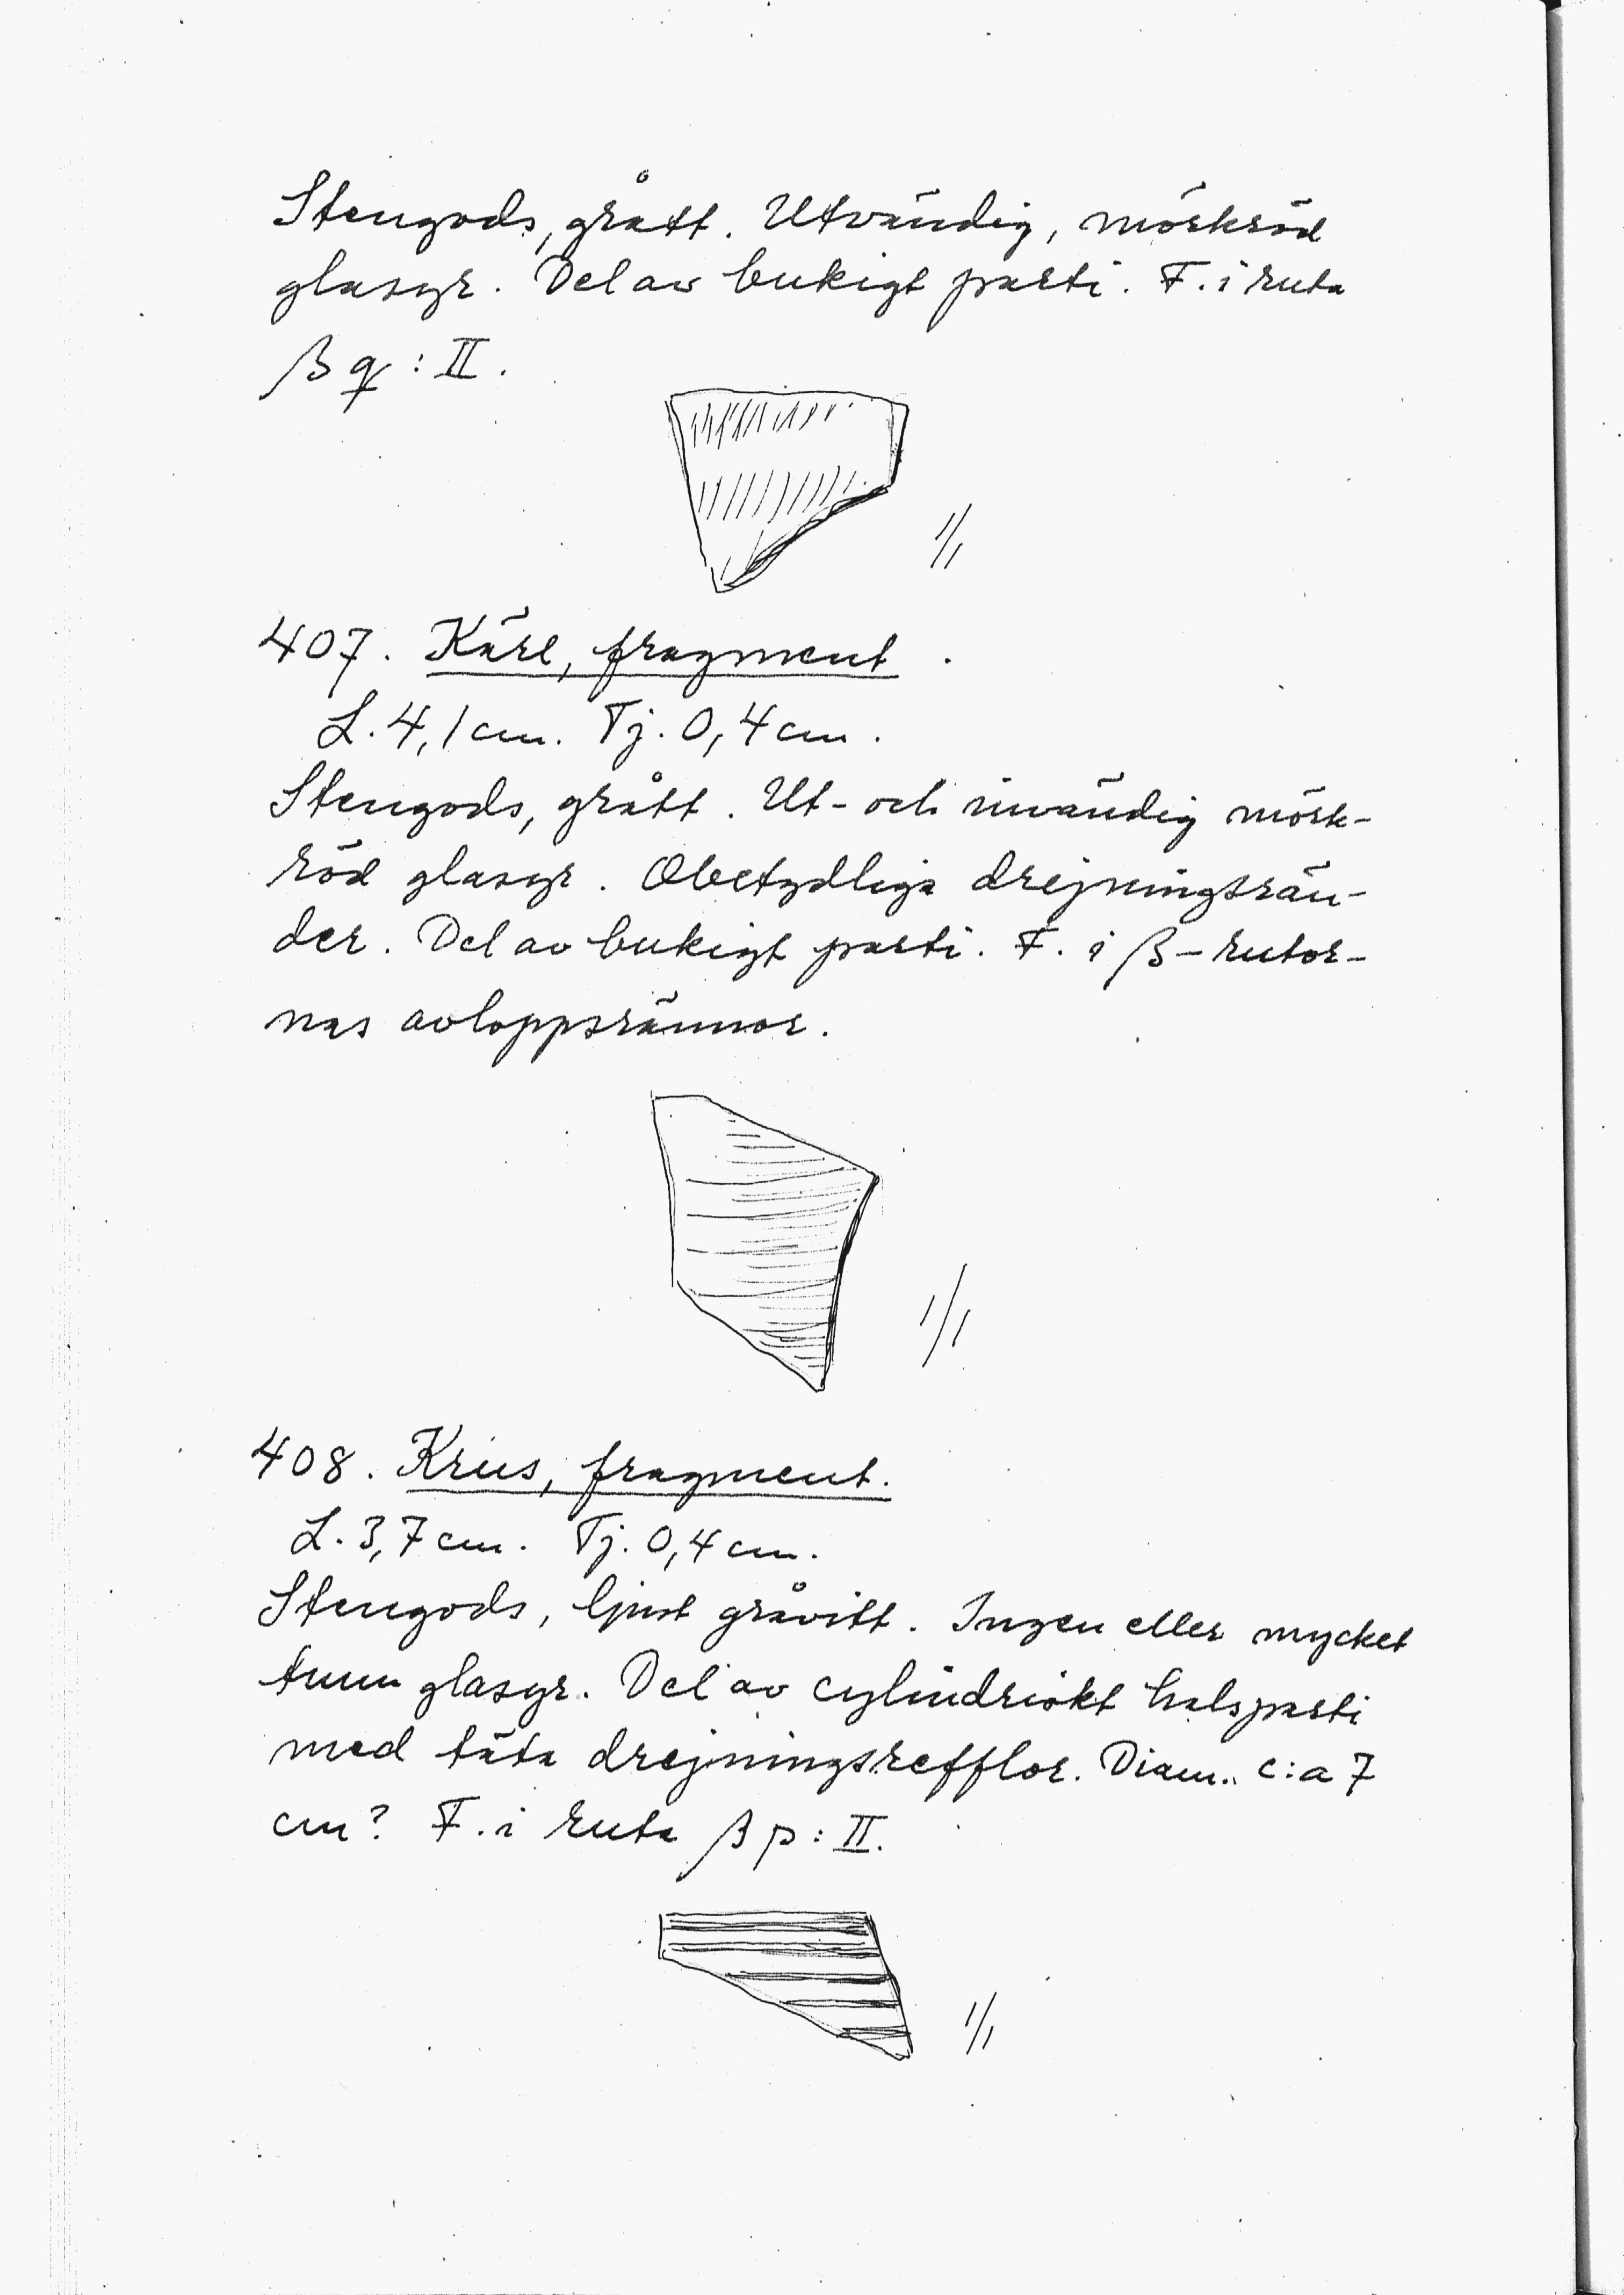 Stengods, grått. Utvändig, mörkröd
glasyr. Del av bukigt parti. F. i ruta
β q : II.
1/1
407. Kärl, fragment.
L. 4,1 cm. Tj. 0,4 cm.
Stengods, grått. Ut- och invändig mörk-
röd glasyr. Obetydliga drejningsrän-
der. Del av bukigt parti. F. i β-rutor-
nas avloppsrännor.
1/1
408. Krus, fragment.
L. 3,7 cm. Tj. 0,4 cm.
Stengods, ljust gråvitt. Ingen eller mycket
tunn glasyr. Del av cylindriskt halsparti
med täta drejningsrefflor. Diam. c:a 7
cm? F. i ruta β p : II.
1/1